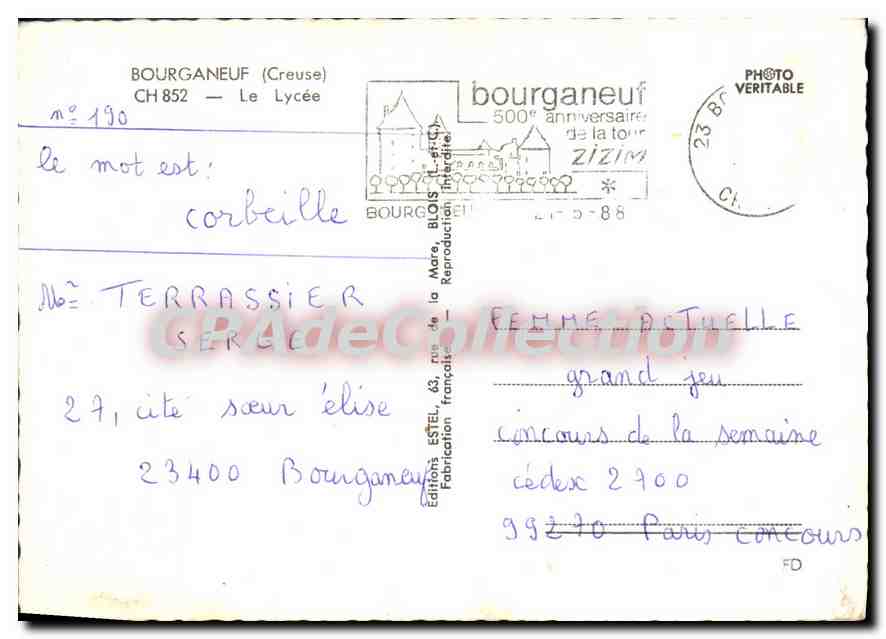 BOURGANEUF (Creuse)
CH 852 — Le Lycée
n° 190
le mot est :
corbeille
TERRASSIER
SERGE
27, cité sœur élise
23400 Bourganeuf
Editions ESTEL, 63, rue de la Mare, BLOIS (L.-et-C.)
Fabrication française — Reproduction interdite.
bourganeuf
500e anniversaire
de la tour
ZIZIM
*
-88
23
PHOTO
VERITABLE
FEMME ACTUELLE
grand jeu
concours de la semaine
cédex 2700
99270 Paris concours
FD
CPAdeCollection